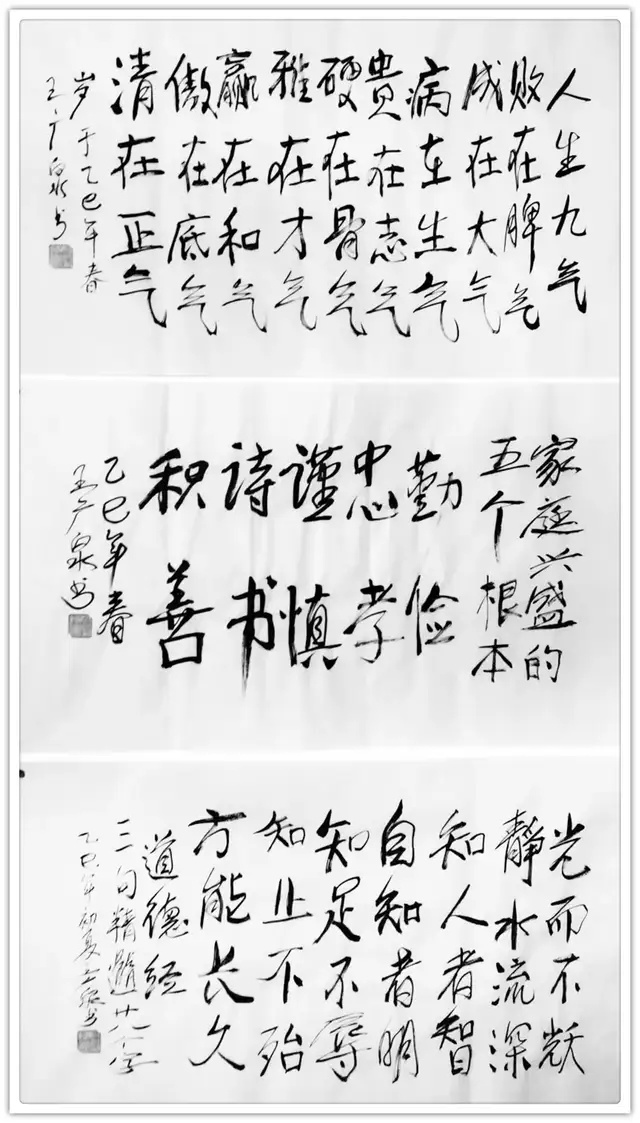 人生九气
败在脾气
成在大气
病在生气
贵在志气
硬在骨气
雅在才气
赢在和气
傲在底气
清在正气
岁于乙巳年春
王广泉书
家庭兴盛的
五个根本
勤俭
忠孝
谨慎
诗书
积善
乙巳年春
王广泉书
光而不耀
静水流深
知人者智
自知者明
知足不辱
知止不殆
方能长久
道德经
三句精髓廿八字
乙巳年初夏广泉书